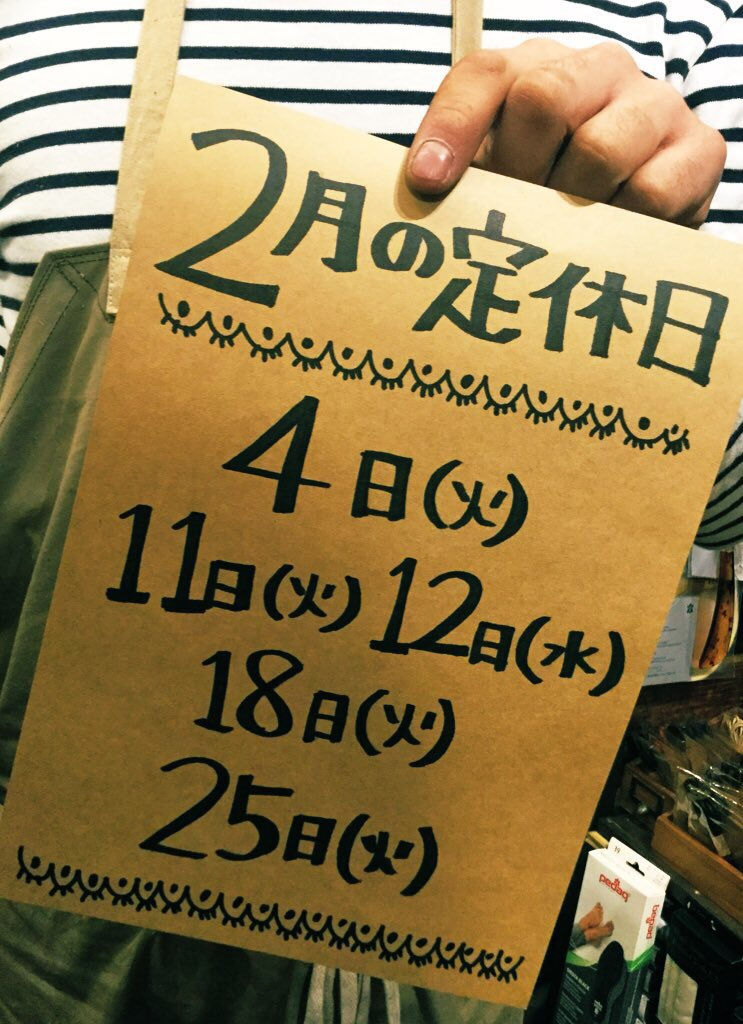 2月の定休日
4日(火)
11日(火) 12日(水)
18日(火)
25日(火)
pedag
pedag